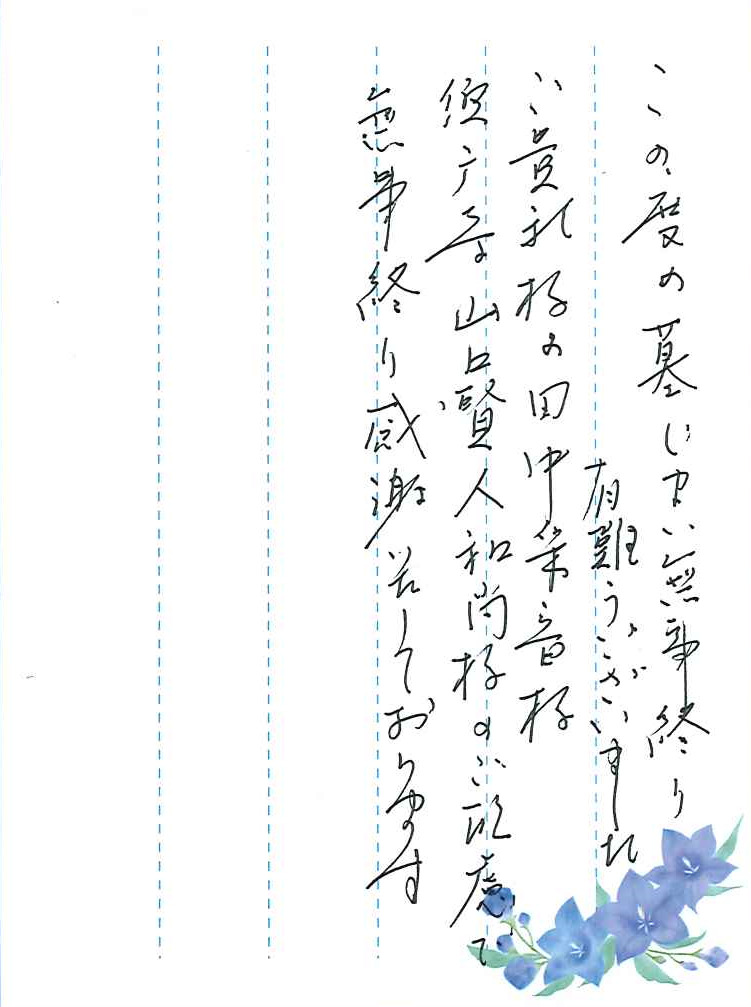 この度の墓じまい無事終り
有難うございました
ご貴社様の田中菜音様
山口賢人和尚様のご配慮で
無事終り感謝して おります